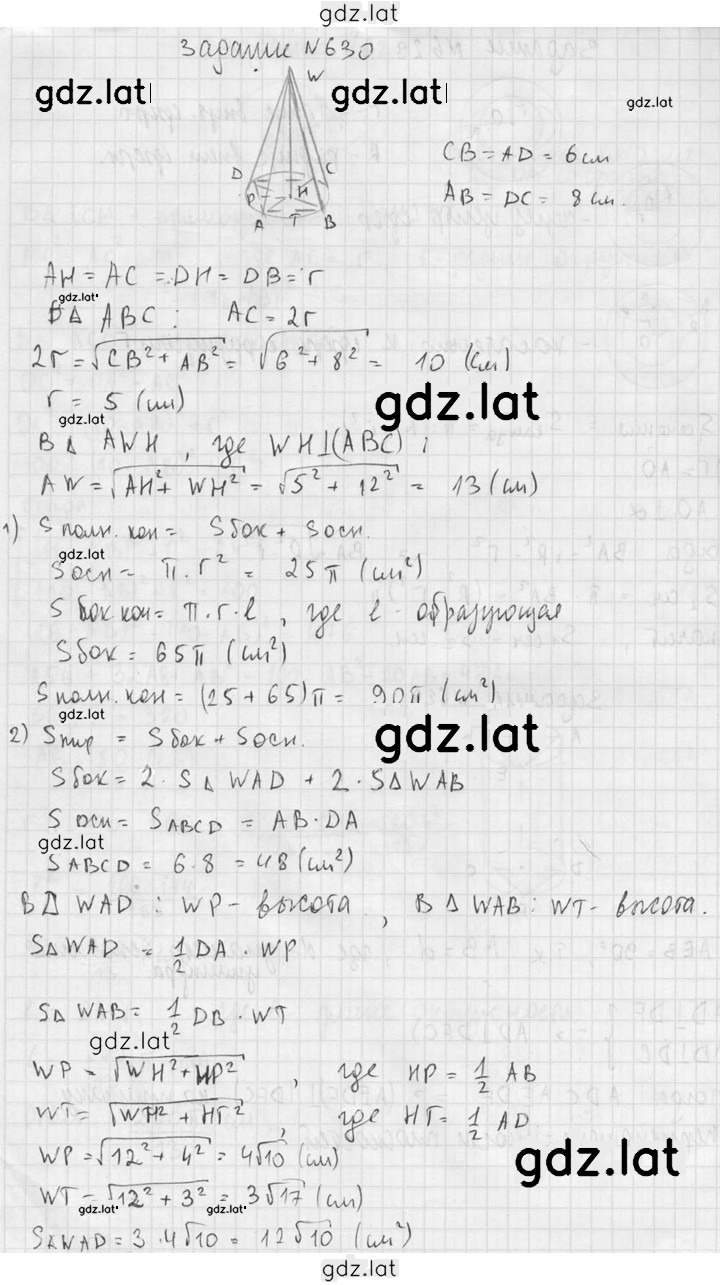 gdz.lat
Задание №630
gdz.lat
gdz.lat
W
D
C
P
H
A
T
B
CB = AD = 6 см
AB = DC = 8 см.
AH = AC = DH = DB = r
gdz.lat
В Δ ABC : AC = 2r
2r = √CB² + AB² = √6² + 8² = 10 (см)
r = 5 (см)
gdz.lat
gdz.lat
В Δ AWH , где WH⊥(ABC) :
AW = √AH² + WH² = √5² + 12² = 13 (см)
1) S полн. кон = S бок + S осн.
gdz.lat
S осн = π · r² = 25π (см²)
S бок кон = π · r · l , где l - образующая
S бок = 65π (см²)
S полн. кон = (25 + 65)π = 90π (см²)
gdz.lat
2) S пир = S бок + S осн.
gdz.lat
S бок = 2 · SΔ WAD + 2 · SΔ WAB
S осн = S ABCD = AB · DA
gdz.lat
S ABCD = 6 · 8 = 48 (см²)
В Δ WAD : WP - высота , В Δ WAB : WT - высота.
SΔ WAD = 1/2 DA · WP
SΔ WAB = 1/2 DB · WT
gdz.lat
WP = √WH² + HP² , где HP = 1/2 AB
WT = √WH² + HT² , где HT = 1/2 AD
WP = √12² + 4² = 4√10 (см)
gdz.lat
WT = √12² + 3² = 3√17 (см)
gdz.lat
gdz.lat
SΔWAD = 3 · 4√10 = 12√10 (см²)
gdz.lat